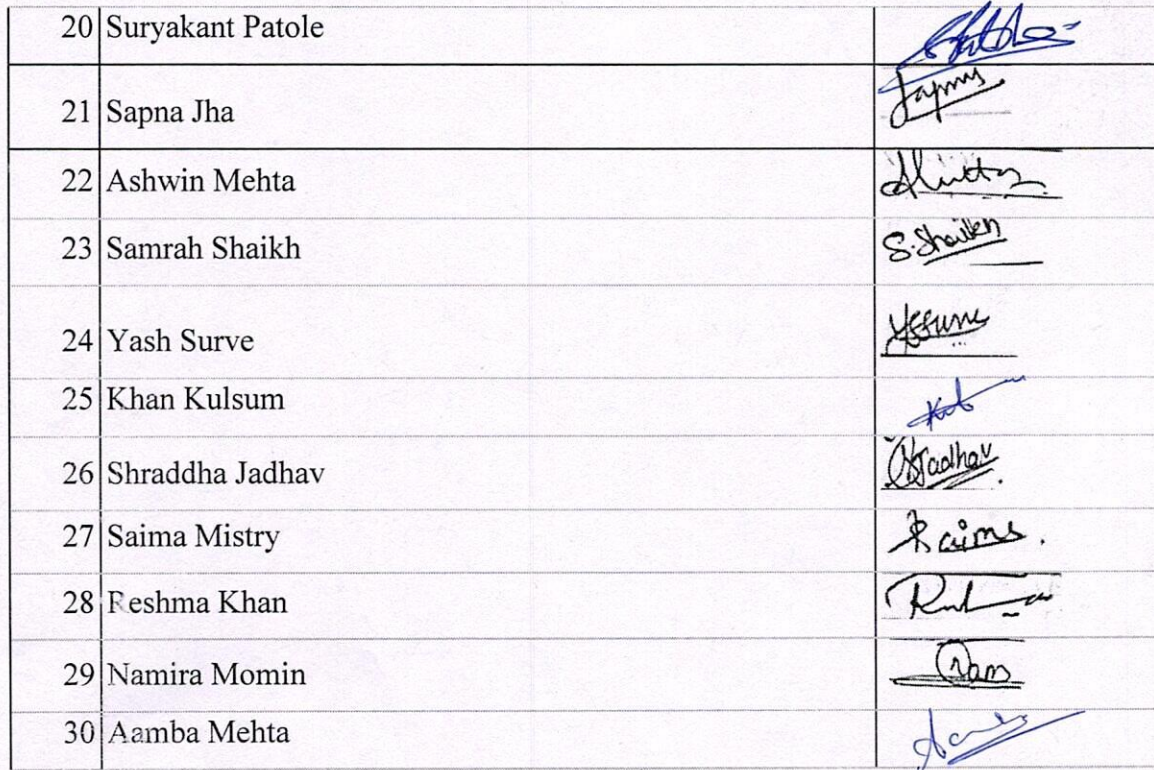 20 Suryakant Patole
21 Sapna Jha
22 Ashwin Mehta
23 Samrah Shaikh S.Shaikh
24 Yash Surve
25 Khan Kulsum
26 Shraddha Jadhav Jadhav
27 Saima Mistry Saima.
28 Reshma Khan
29 Namira Momin
30 Aamba Mehta